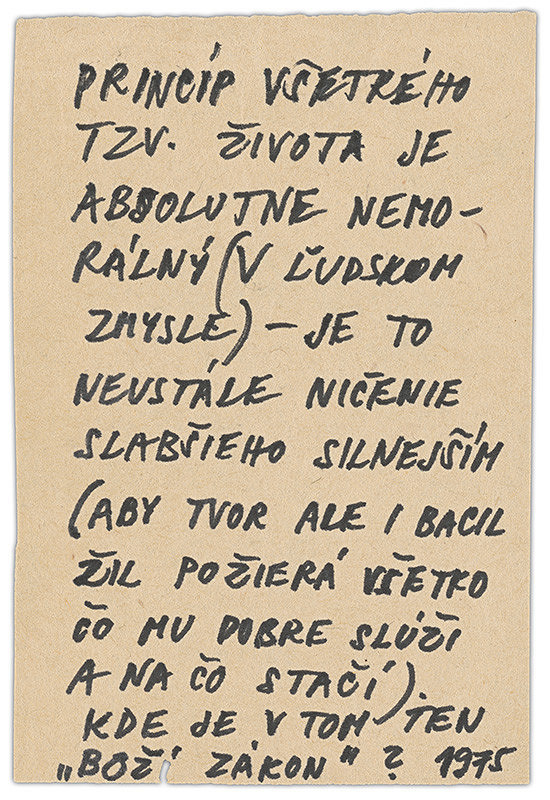 PRINCÍP VŠETKÉHO
TZV. ŽIVOTA JE
ABSOLUTNE NEMO-
RÁLNÝ (V ĽUDSKOM
ZMYSLE) – JE TO
NEUSTÁLE NIČENIE
SLABŠIEHO SILNEJŠÍM
(ABY TVOR ALE I BACIL
ŽIL POŽIERÁ VŠETKO
ČO MU DOBRE SLÚŽI
A NA ČO STAČÍ).
KDE JE V TOM TEN
„BOŽÍ ZÁKON" ? 1975